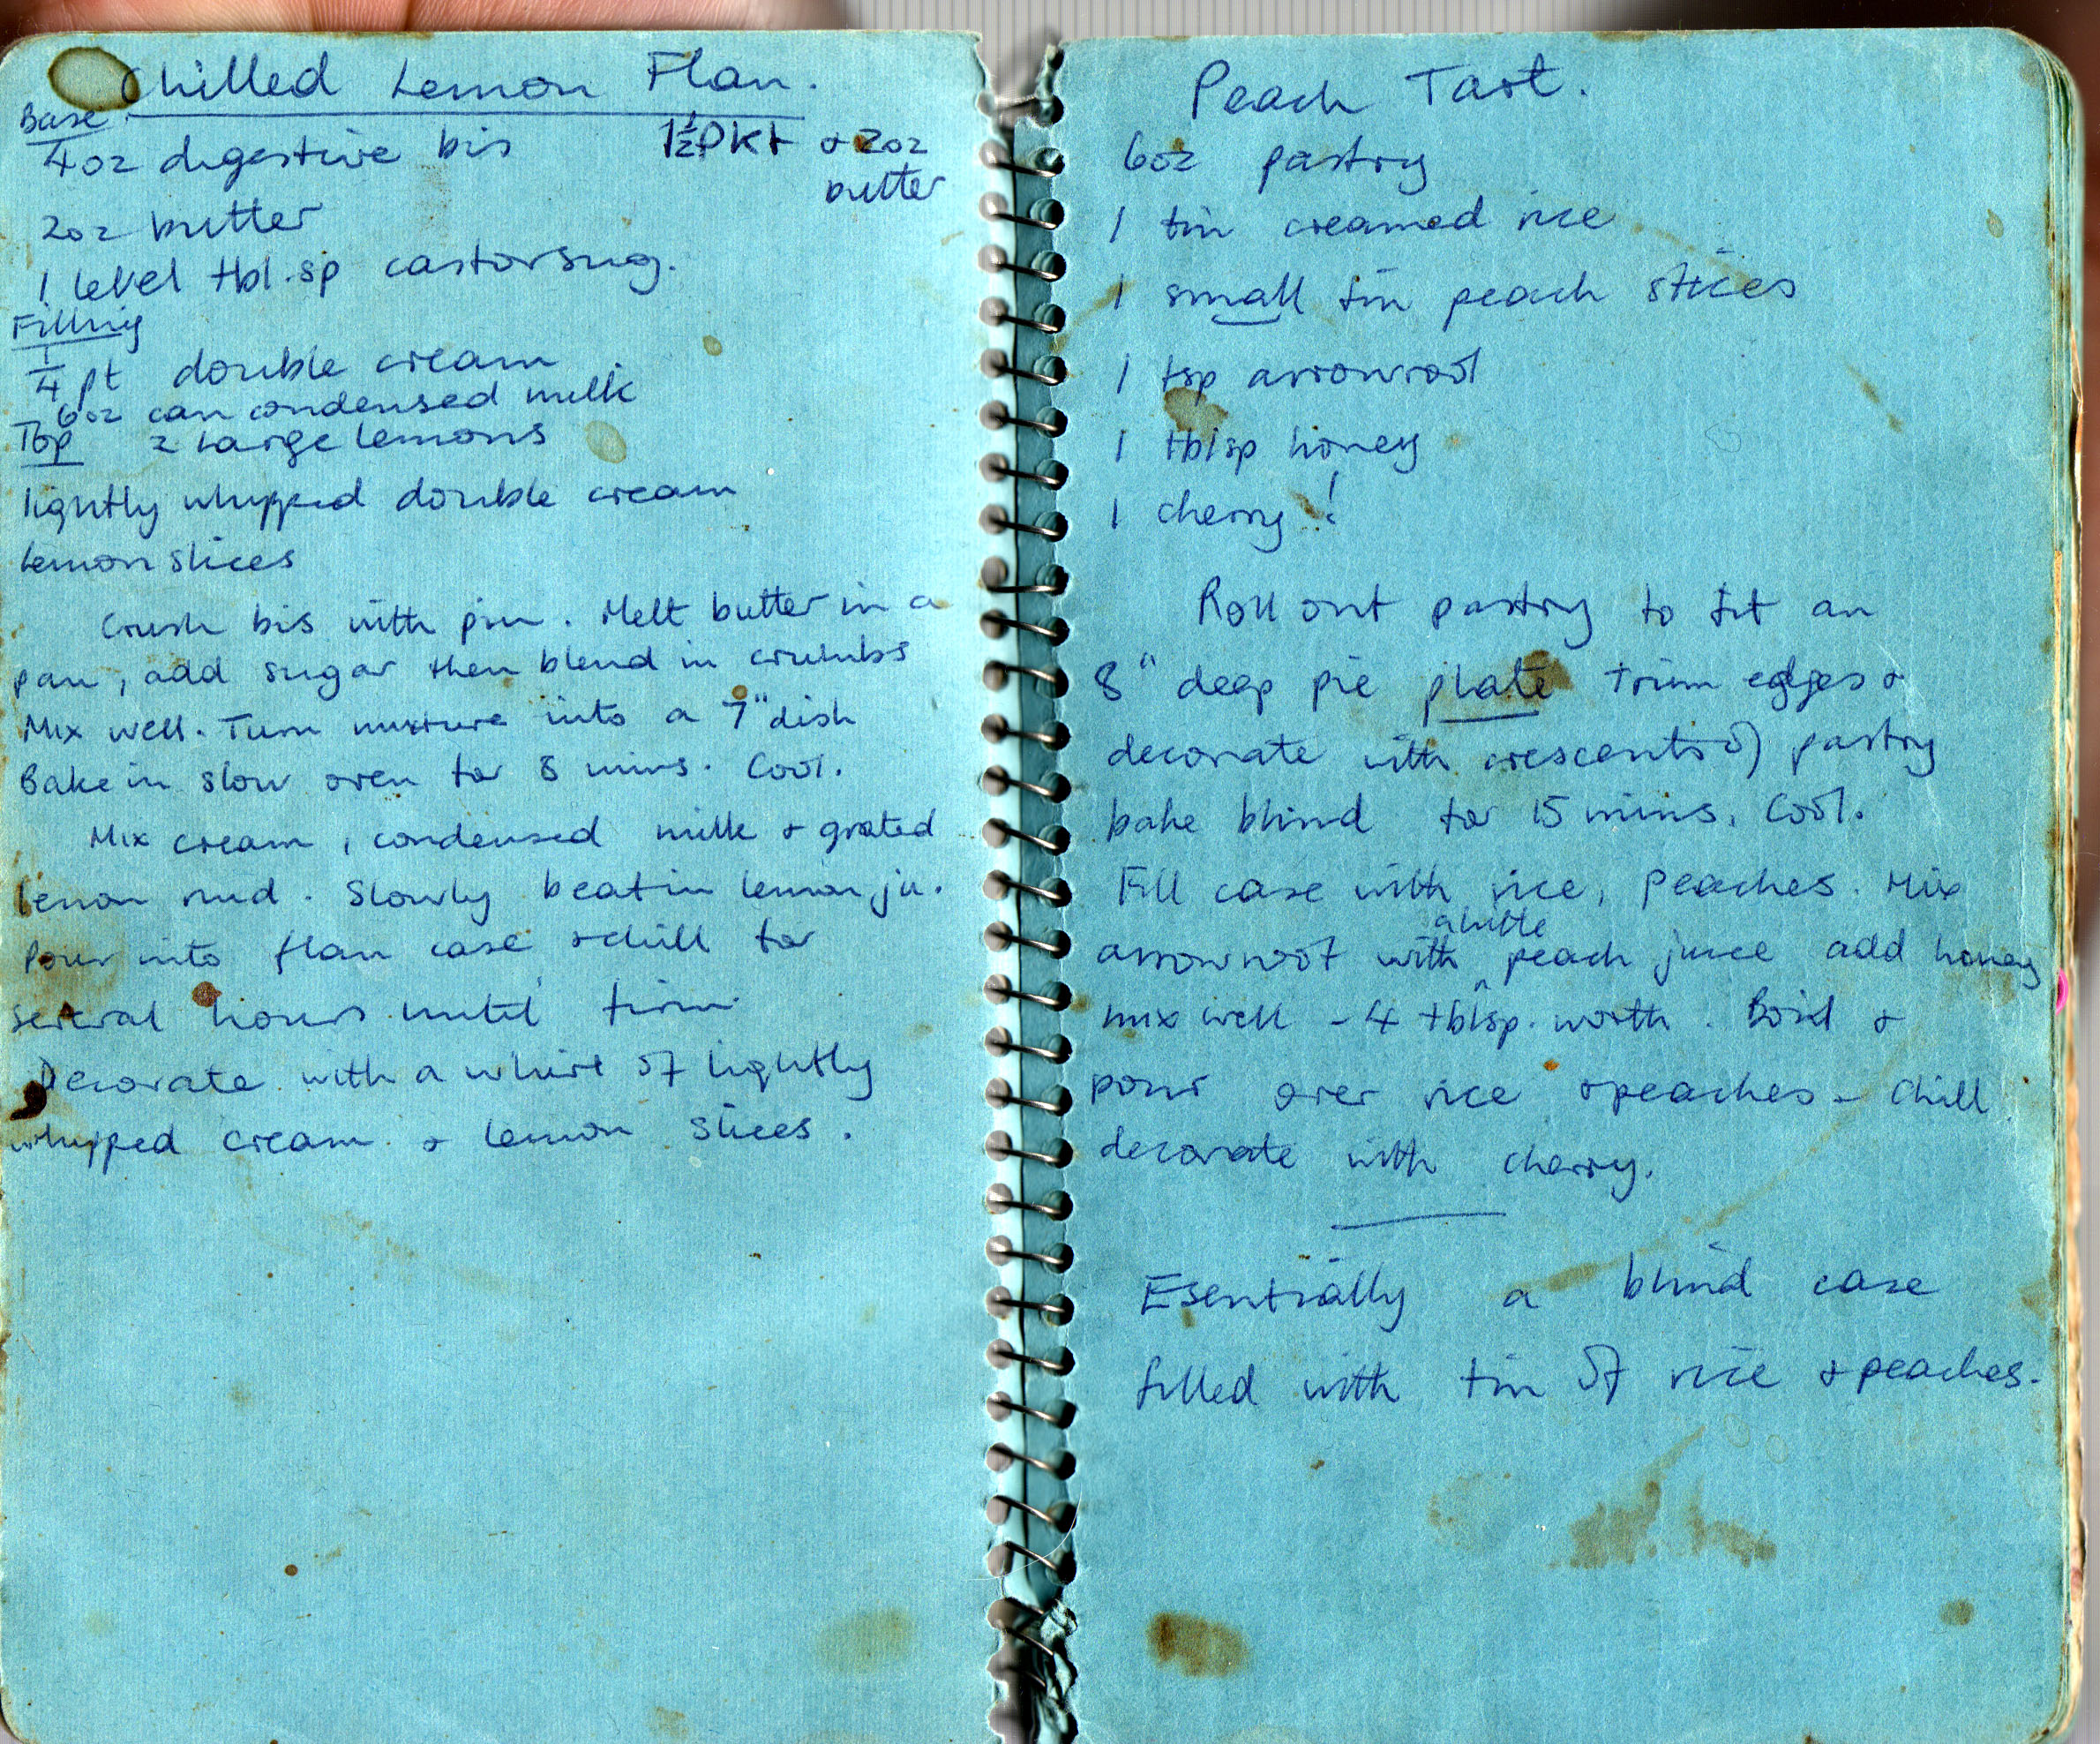 Chilled Lemon Flan.
Base
4oz digestive bis 1½ PKt & 2oz
butter
2oz butter
1 level tbl.sp castor sug.
Filling
1/4 pt double cream
6oz can condensed milk
2 Large Lemons
Top
lightly whipped double cream
Lemon slices
Crush bis with pin. Melt butter in a
pan, add sugar then blend in crumbs
Mix well. Turn mixture into a 7" dish
Bake in slow oven for 8 mins. Cool.
Mix cream, condensed milk & grated
lemon rind. Slowly beat in lemon ju.
Pour into flan case & chill for
several hours until firm.
Decorate with a whirl of lightly
whipped cream & lemon slices.
Peach Tart.
6oz pastry
1 tin creamed rice
1 small tin peach slices
1 tsp arrowroot
1 tblsp honey
1 cherry!
Roll out pastry to fit an
8" deep pie plate trim edges &
decorate with crescents of pastry
bake blind for 15 mins. Cool.
Fill case with rice, peaches. Mix
arrowroot with a little peach juice add honey
mix well - 4 tblsp. worth. Boil &
pour over rice & peaches - Chill.
decorate with cherry.
Esentially a blind case
filled with tin of rice & peaches.